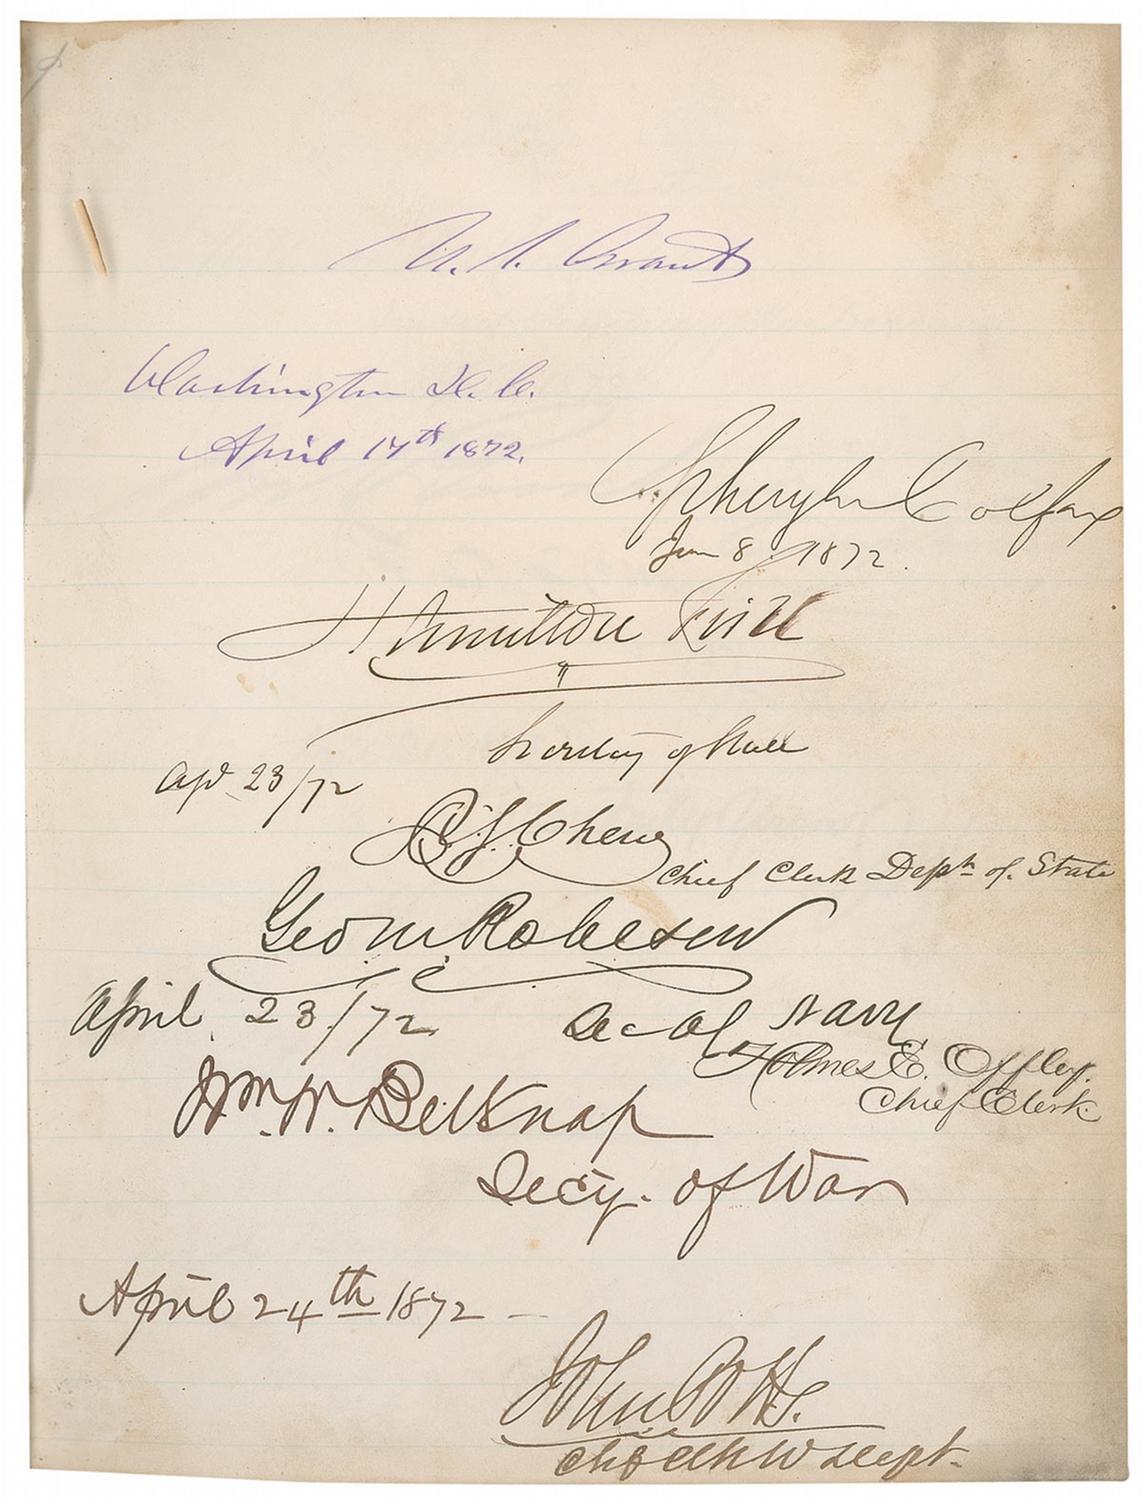 U. S. Grant
Washington D. C.
April 17th 1872.
Schuyler Colfax
Jun 8, 1872.
Hamilton Fish
Secretary of State
Apl 23/72
Chief Clerk Dept of State
Geo M Robeson
April 23/72
Sec of Navy
Holmes E. Offley.
Chief Clerk
Wm. W. Belknap
Secy. of War
April 24th 1872 -
John Potts.
Chf Clk W Dept.